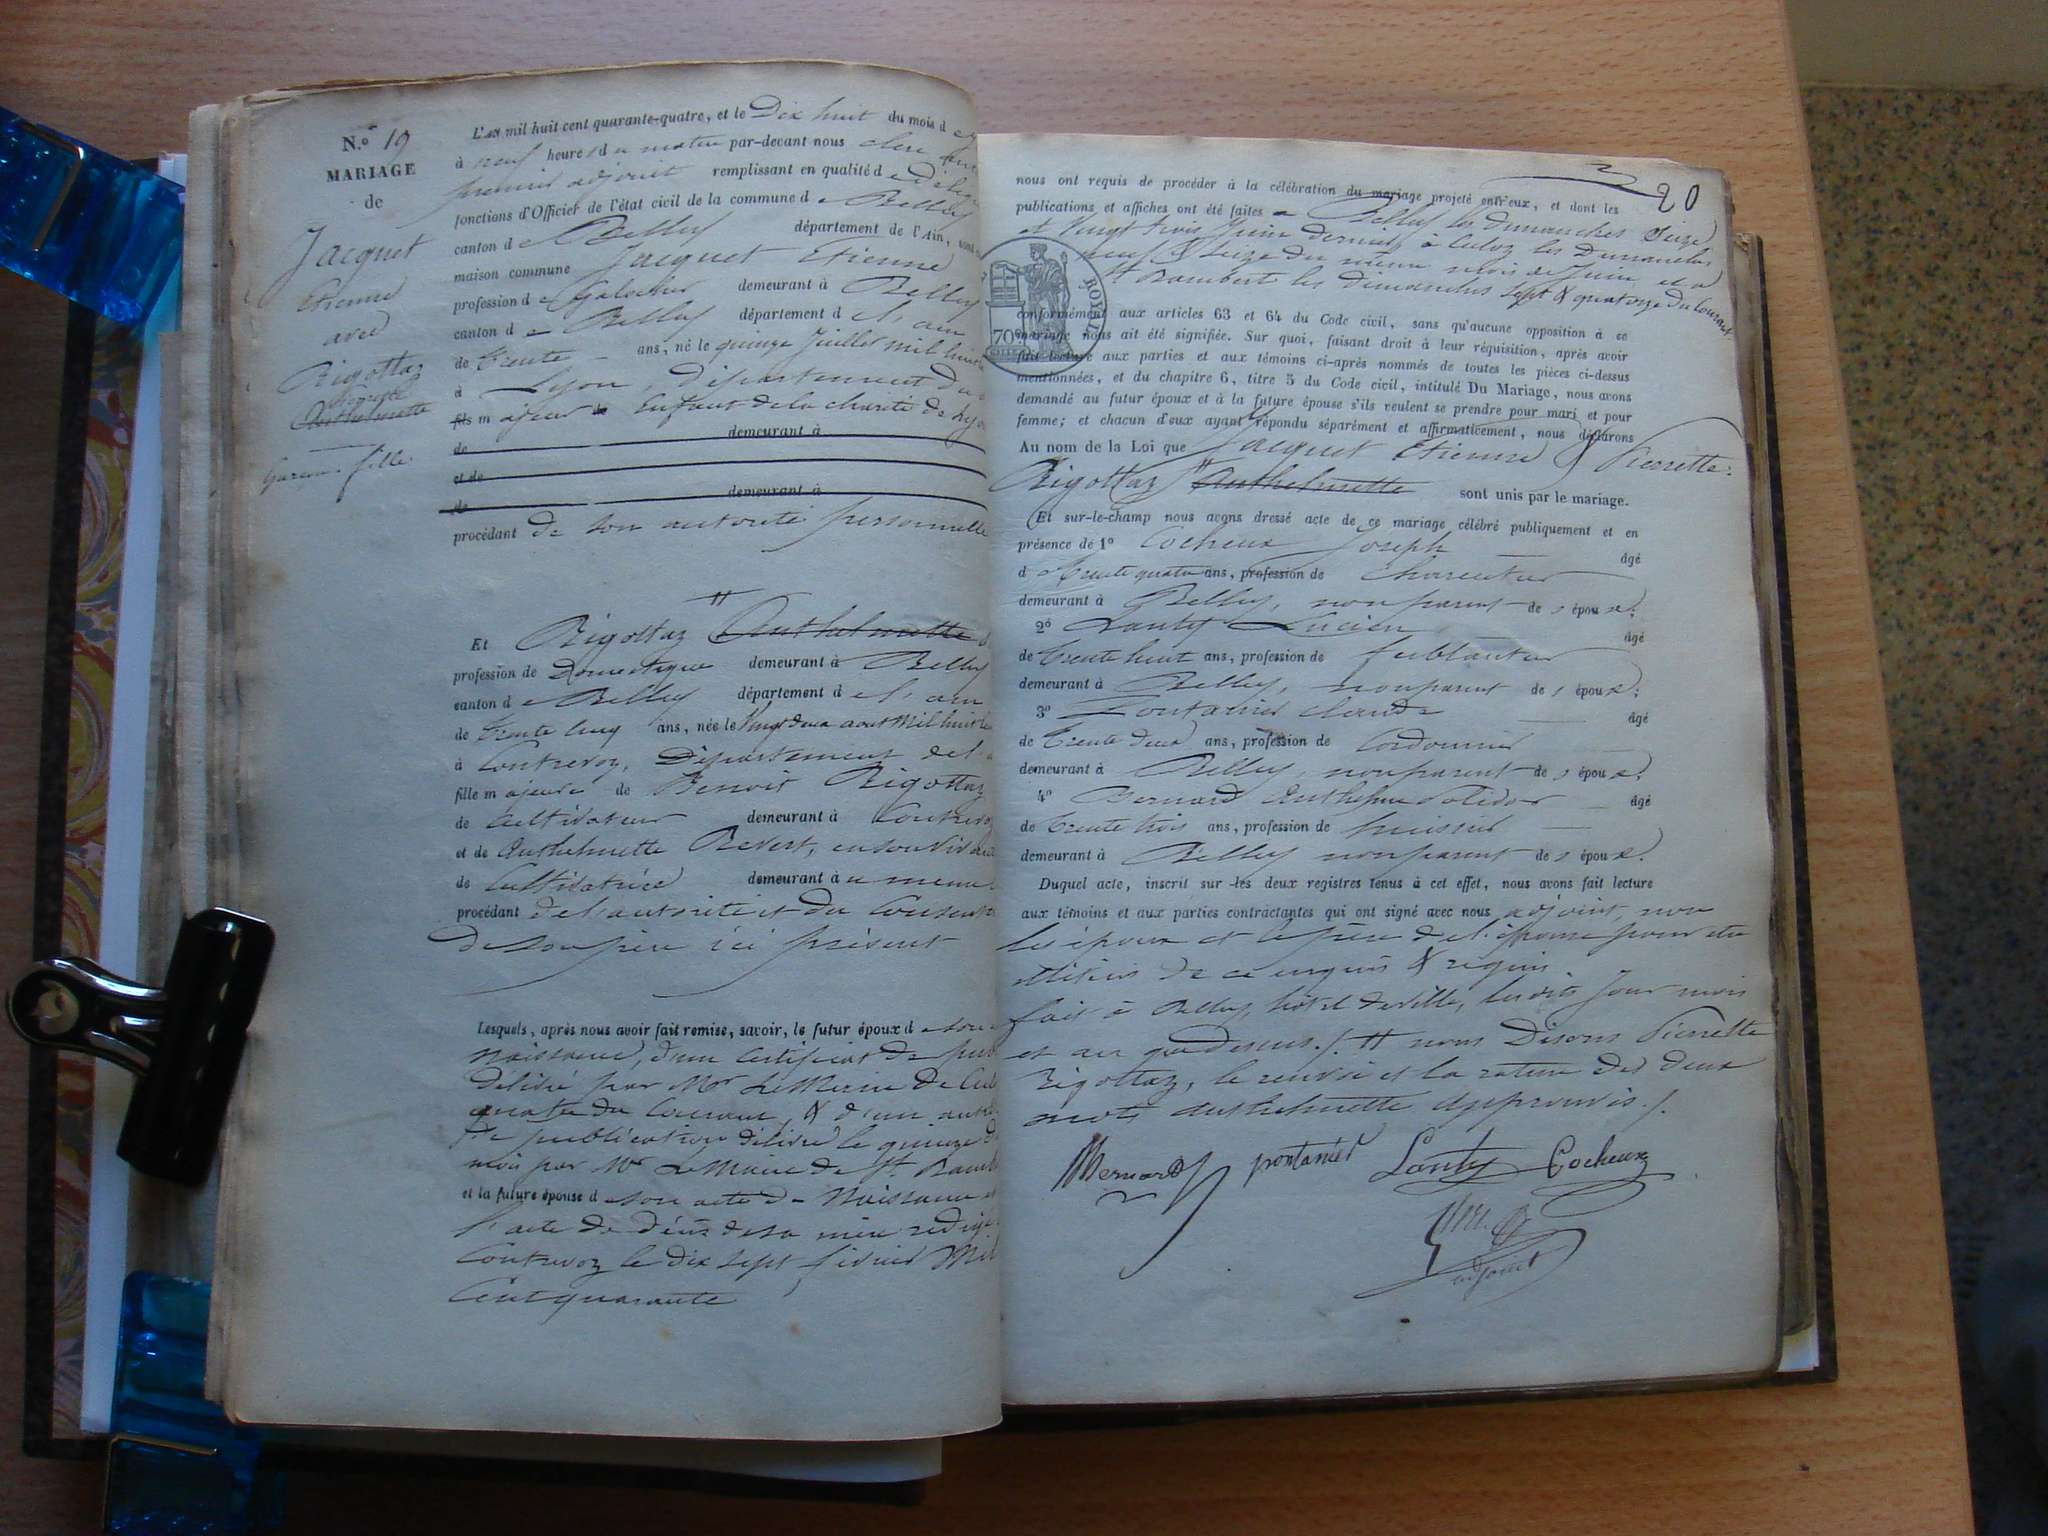 N.º 19
MARIAGE
de
Jacquet
Etienne
avec
Rigottaz
Pierrette
Anthelmette
Garçon. fille.
L'an mil huit cent quarante-quatre, et le Dix huit du mois d
à neuf heures du matin par-devant nous
premier adjoint remplissant en qualité de
fonctions d'Officier de l'état civil de la commune de Belley
canton de Belley département de l'Ain,
maison commune Jacquet Etienne
profession de Galocher demeurant à Belley
canton de Belley département de l'ain
de trente ans, né le quinze Juillet mil huit
à Lyon, Département du
fils majeur Enfant de la charité de Lyon
de demeurant à
et de
de demeurant à
procédant de son autorité personnelle
Et Rigottaz " Anthelmette
profession de Domestique demeurant à Belley
canton de Belley département de l'ain
de trente cinq ans, née le Vingt deux aout Mil huit
à Contrevoz, Département de l'
fille majeure de Benoit Rigottaz
de cultivateur demeurant à Contrevoz
et de Anthelmette Revert, en son vivant
de Cultivatrice demeurant à
procédant de l'autorité et du Consent
de son père ici présent
Lesquels, après nous avoir fait remise, savoir, le futur époux de son
Naissance, d'un certificat de pub
délivré par Mr Le Maire de Cul
quatre du Courant, & d'un autre
de publication délivré le quinze du
mois par Mr Le Maire de St Ramb
et la future épouse de son acte de Naissance et
l'acte de décès de sa mère rédigé
Contrevoz le dix sept février Mil
Cent quarante
20
nous ont requis de procéder à la célébration du mariage projeté entr'eux, et dont les
publications et affiches ont été faites à Belley les dimanches Seize
et Vingt trois Juin dernier, à Culoz les Dimanches
neuf & Seize du même mois de Juin et à
St Rambert les dimanches sept & quatorze du Courant
ROYAL
70
conformément aux articles 63 et 64 du Code civil, sans qu'aucune opposition à ce
mariage nous ait été signifiée. Sur quoi, faisant droit à leur réquisition, après avoir
fait lecture aux parties et aux témoins ci-après nommés de toutes les pièces ci-dessus
mentionnées, et du chapitre 6, titre 5 du Code civil, intitulé Du Mariage, nous avons
demandé au futur époux et à la future épouse s'ils veulent se prendre pour mari et pour
femme; et chacun d'eux ayant répondu séparément et affirmativement, nous déclarons
Au nom de la Loi que Jacquet Etienne & Pierrette
Rigottaz " Anthelmette sont unis par le mariage.
Et sur-le-champ nous avons dressé acte de ce mariage célébré publiquement et en
présence de 1º Cocheux Joseph âgé
de trente quatre ans, profession de Charcutier
demeurant à Belley, non parent des époux;
2º Lanty Lucien âgé
de trente huit ans, profession de ferblantier
demeurant à Belley, non parent des époux;
3º Pontanier Claude âgé
de trente deux ans, profession de Cordonnier
demeurant à Belley, non parent des époux;
4º Bernard Anthelme Polidor âgé
de trente trois ans, profession de huissier
demeurant à Belley non parent des époux.
Duquel acte, inscrit sur les deux registres tenus à cet effet, nous avons fait lecture
aux témoins et aux parties contractantes qui ont signé avec nous adjoint, non
les époux et le père de l'épouse pour être
illitérés de ce enquis & requis
fait à Belley, hôtel de ville, lesdits Jour mois
et an que dessus./. " nous Disons Pierrette
Rigottaz, le renvoi et la rature des deux
mots anthelmette approuvés./.
Bernard pontanier Lanty Cocheux
adjoint